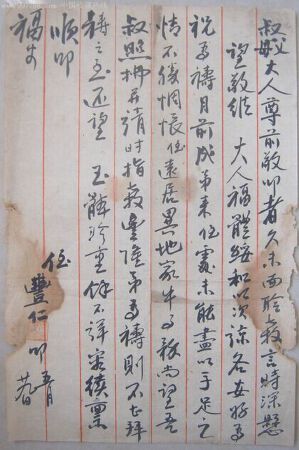 叔母大人尊前敬叩者久未面聆教言時深懸
望敬維 大人福體綏和以次諒各安好為
祝為禱月前成弟來侄處未能盡以手足之
情不勝惆悵侄遠居異地家中事務尚望吾
叔照拂并請时指教豊隆弟為禱則不七拜
禱之至还望 玉體珍重餘不詳容續稟
順叩
福安
侄 豐仁 叩 首